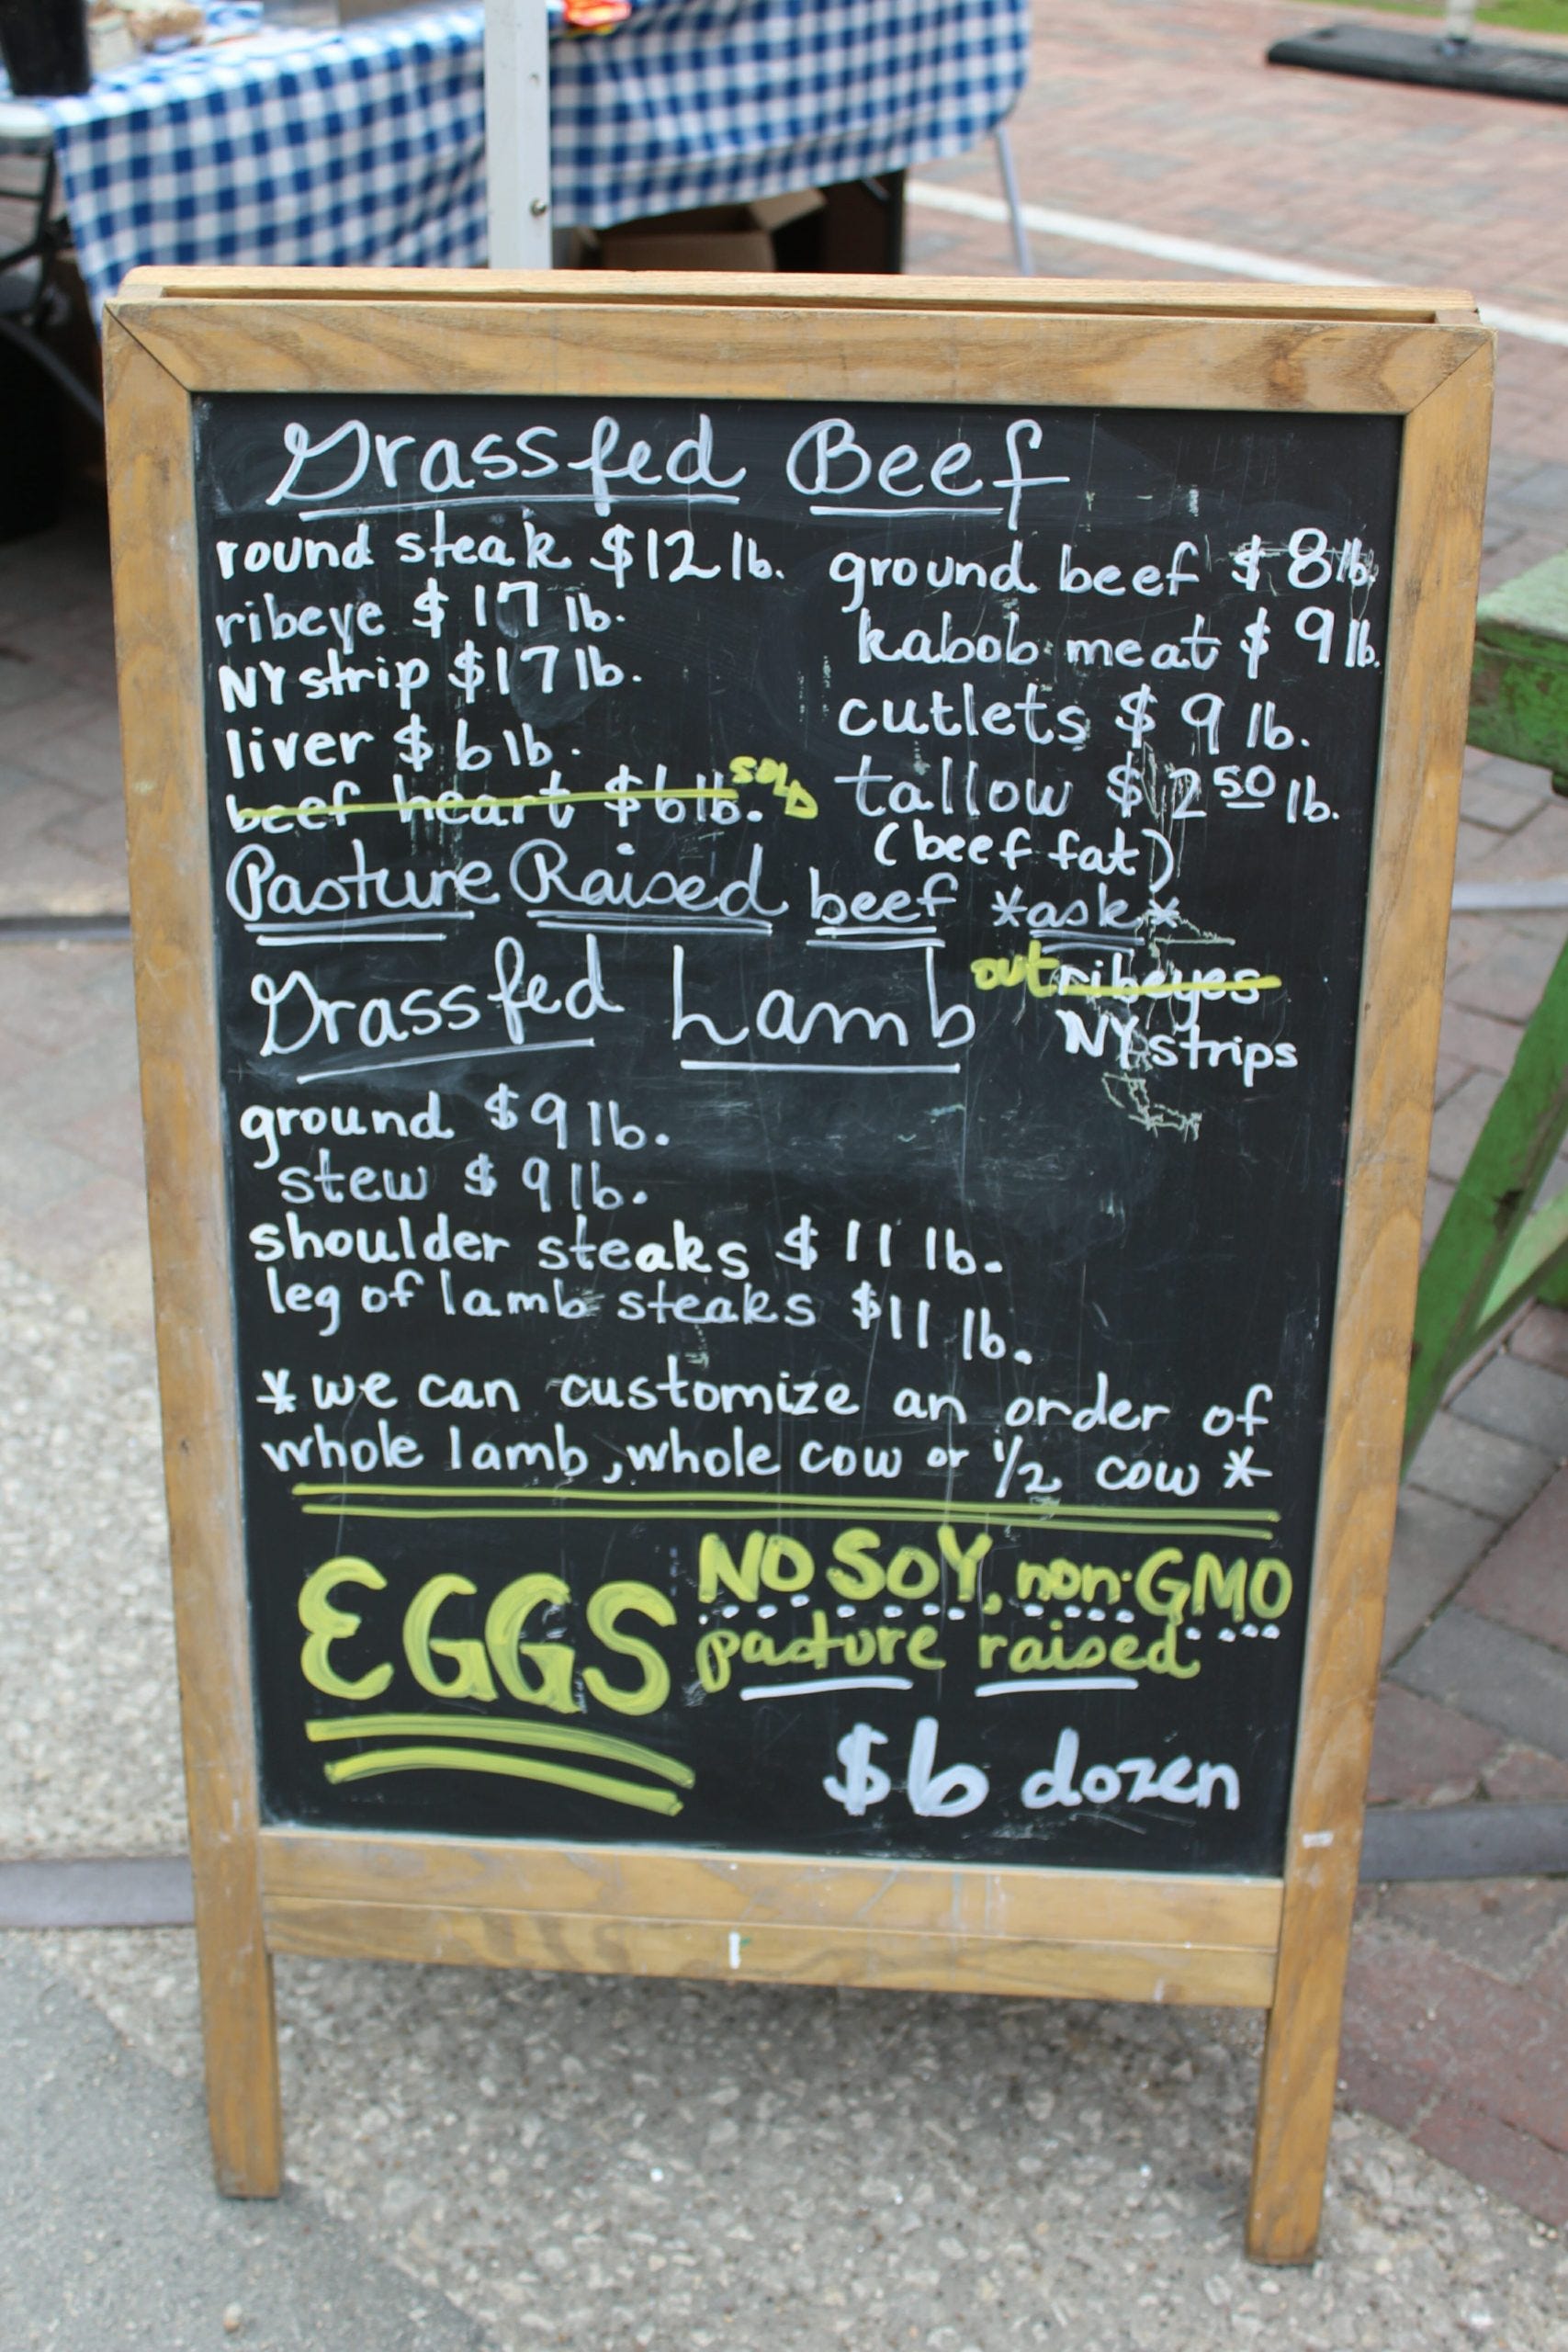 Grassfed Beef
round steak $12 lb.
ribeye $17 lb.
NY strip $17 lb.
liver $6 lb.
beef heart $6 lb. SOLD
ground beef $8 lb.
kabob meat $9 lb.
cutlets $9 lb.
tallow $2 50 lb.
(beef fat)
Pasture Raised beef *ask*
out ribeyes
NY strips
Grassfed Lamb
ground $9 lb.
stew $9 lb.
shoulder steaks $11 lb.
leg of lamb steaks $11 lb.
*we can customize an order of
whole lamb, whole cow or 1/2 cow *
EGGS
NO SOY, non-GMO
pasture raised
$6 dozen